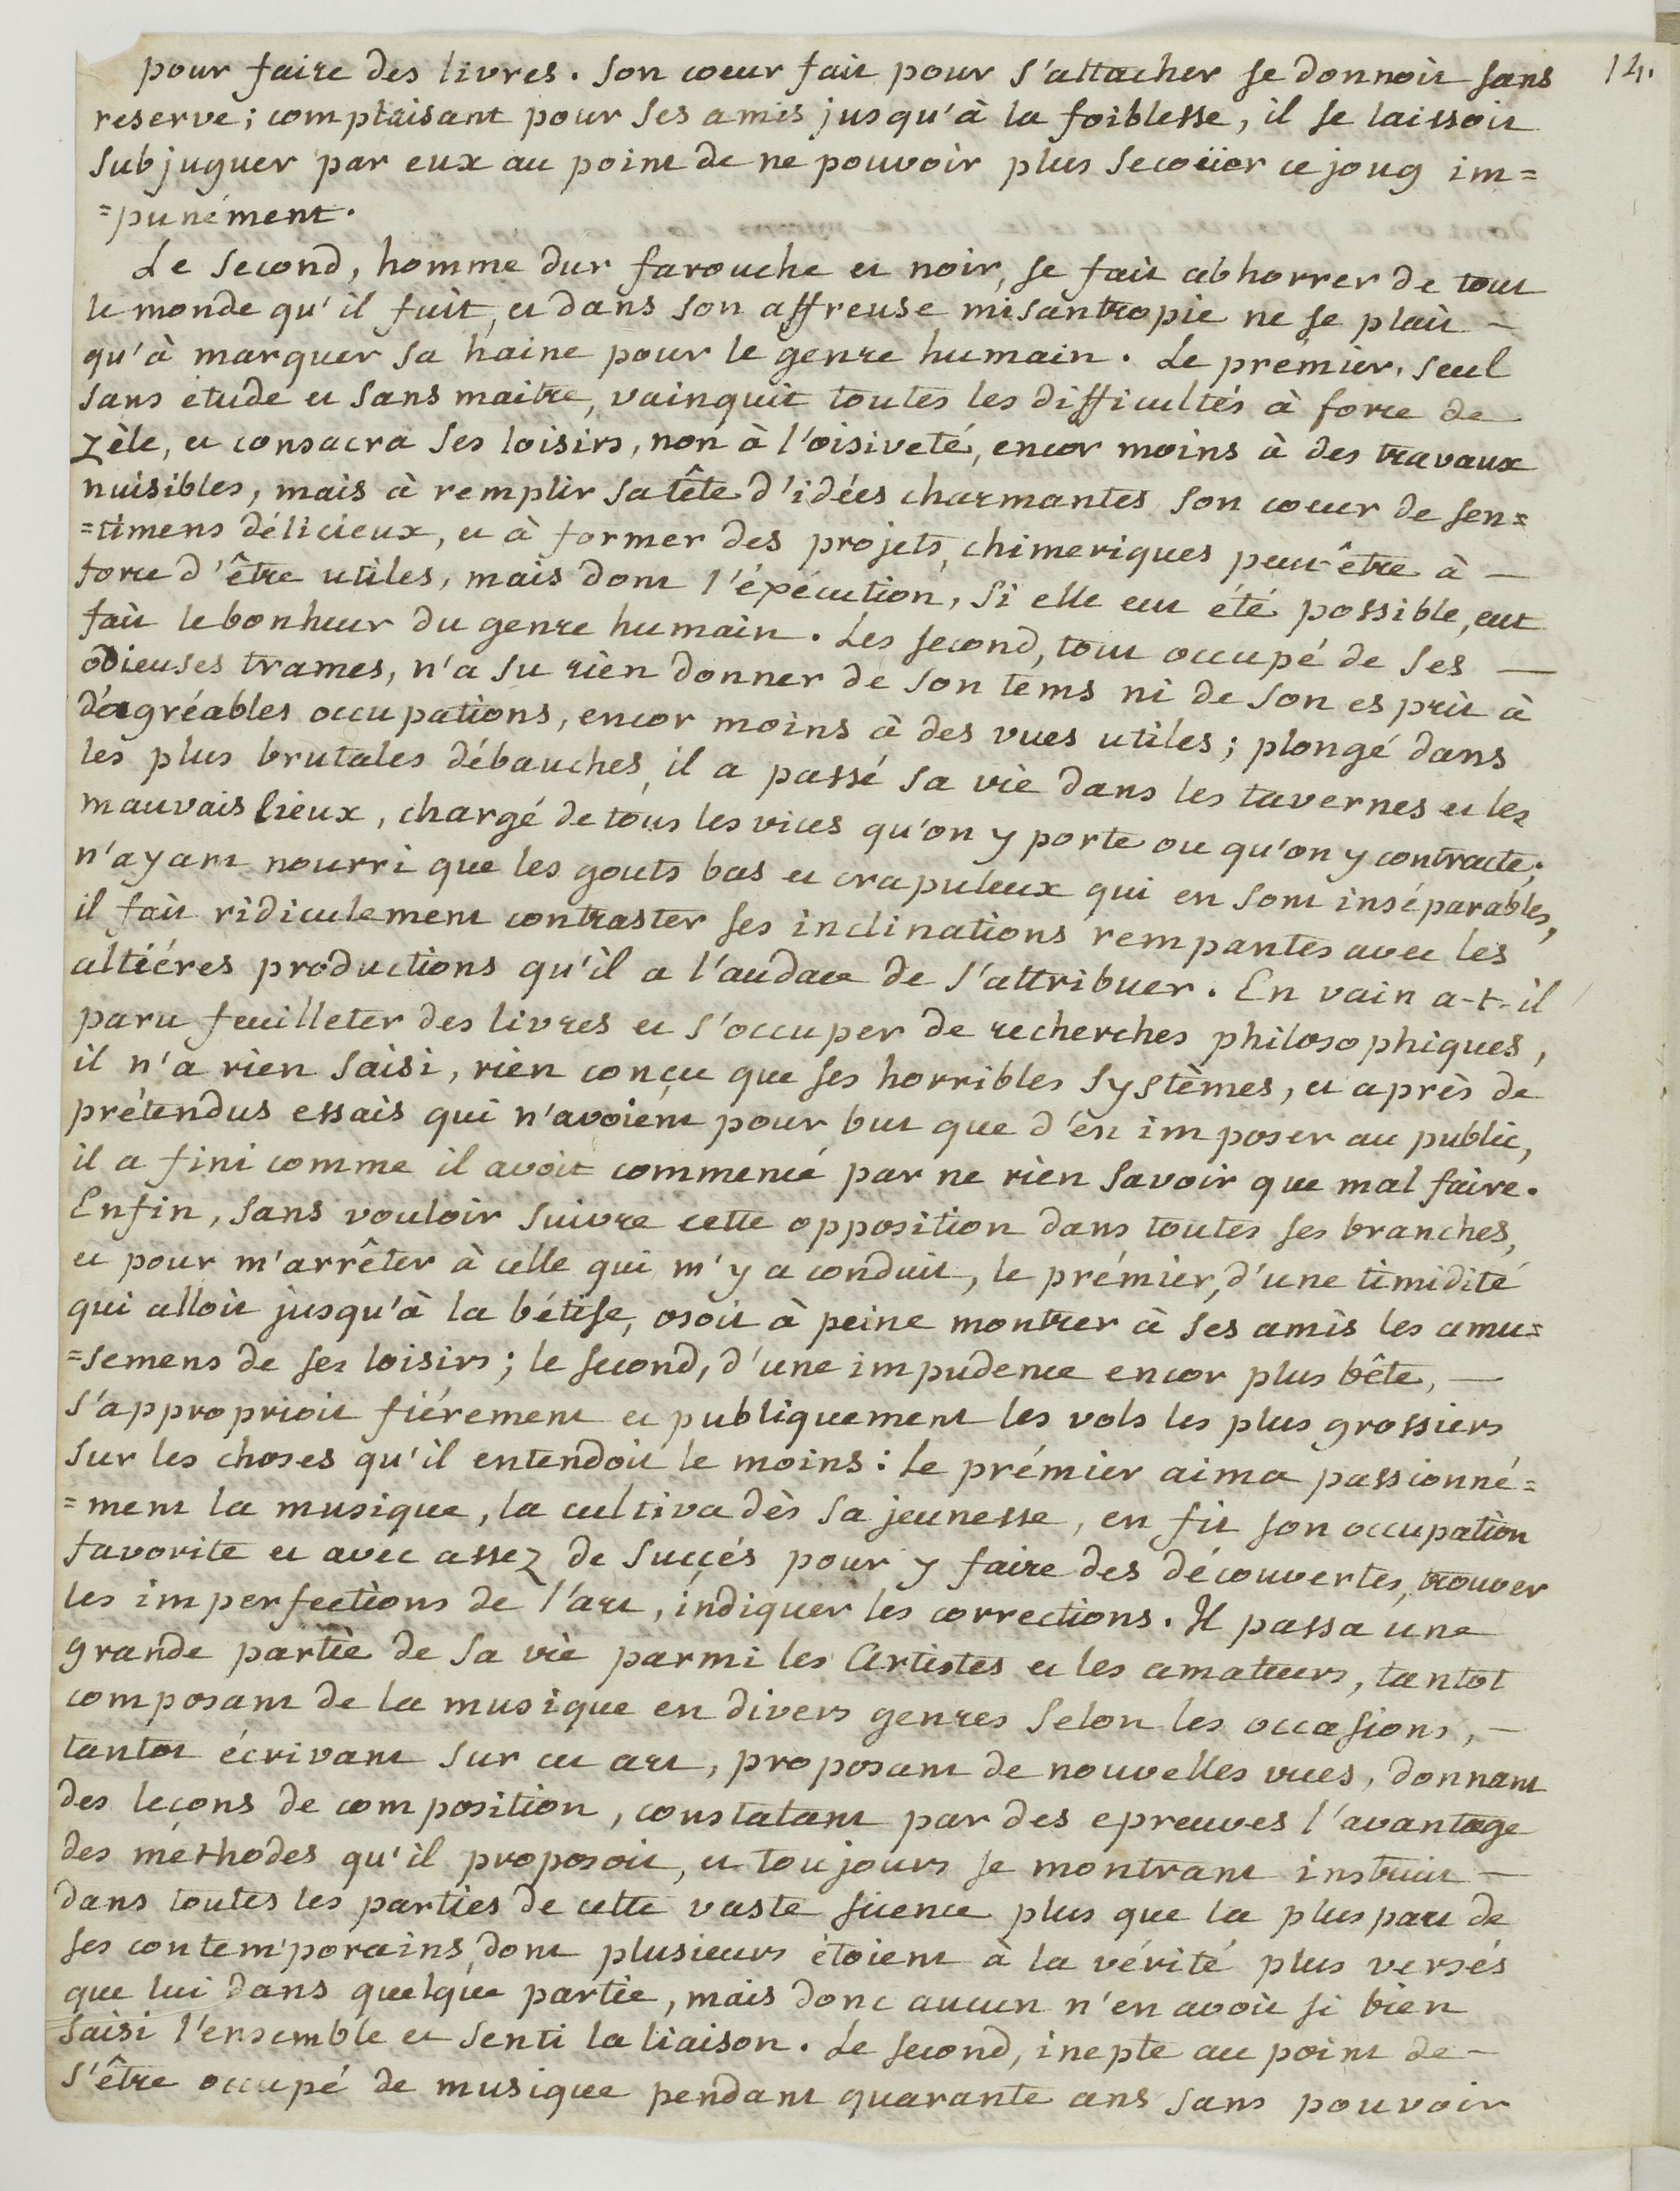 14.
pour faire des livres. Son coeur fait pour s'attacher se donnoit sans
reserve; complaisant pour ses amis jusqu'à la foiblesse, il se laissoit
subjuguer par eux au point de ne pouvoir plus secoüer ce joug im=
=punément.
Le second, homme dur farouche et noir, se fait abhorrer de tout
le monde qu'il fuit, et dans son affreuse misantropie ne se plait –
qu'à marquer sa haine pour le genre humain. Le prémier, seul
sans étude et sans maitre, vainquit toutes les difficultés à force de
zèle, et consacra ses loisirs, non à l'oisiveté, encor moins à des travaux
nuisibles, mais à remplir sa tête d'idées charmantes son coeur de sen=
=timens délicieux, et à former des projets, chimeriques peut-être à –
force d'être utiles, mais dont l'éxécution, si elle eut été possible, eut
fait le bonheur du genre humain. Les second, tout occupé de ses —
odieuses trames, n'a su rien donner de son tems ni de son esprit à
d'agréables occupations, encor moins à des vues utiles; plongé dans
les plus brutales débauches, il a passé sa vie dans les tavernes et les
mauvais lieux, chargé de tous les vices qu'on y porte ou qu'on y contracte;
n'ayant nourri que les gouts bas et crapuleux qui en sont inséparables,
il fait ridiculement contraster ses inclinations rempantes avec les
altiéres productions qu'il a l'audace de s'attribuer. En vain a-t-il
paru feuilleter des livres et s'occuper de recherches philosophiques,
il n'a rien saisi, rien conçu que ses horribles systèmes, et après de
prétendus essais qui n'avoient pour but que d'en imposer au public,
il a fini comme il avoit commencé par ne rien savoir que mal faire.
Enfin, sans vouloir suivre cette opposition dans toutes ses branches,
et pour m'arrêter à celle qui m'y a conduit, le prémier, d'une timidité
qui alloit jusqu'à la bétise, osoit à peine montrer à ses amis les amu=
=semens de ses loisirs; le second, d'une impudence encor plus bête, —
s'approprioit fiérement et publiquement les vols les plus grossiers
sur les choses qu'il entendoit le moins: Le prémier aima passionné=
=ment la musique, la cultiva dès sa jeunesse, en fit son occupation
favorite et avec assez de succés pour y faire des découvertes, trouver
les imperfections de l'art, indiquer les corrections. Il passa une
grande partie de sa vie parmi les Artistes et les amateurs, tantot
composant de la musique en divers genres selon les occasions, –
tantot écrivant sur cet art, proposant de nouvelles vues, donnant
des leçons de composition, constatant par des epreuves l'avantage
des méthodes qu'il proposoit, et toujours se montrant instruit –
dans toutes les parties de cette vaste sience plus que la plus part de
ses contemporains, dont plusieurs étoient à la vérité plus versés
que lui dans quelque partie, mais donc aucun n'en avoit si bien
saisi l'ensemble et senti la liaison. Le second, inepte au point de –
s'être occupé de musique pendant quarante ans sans pouvoir